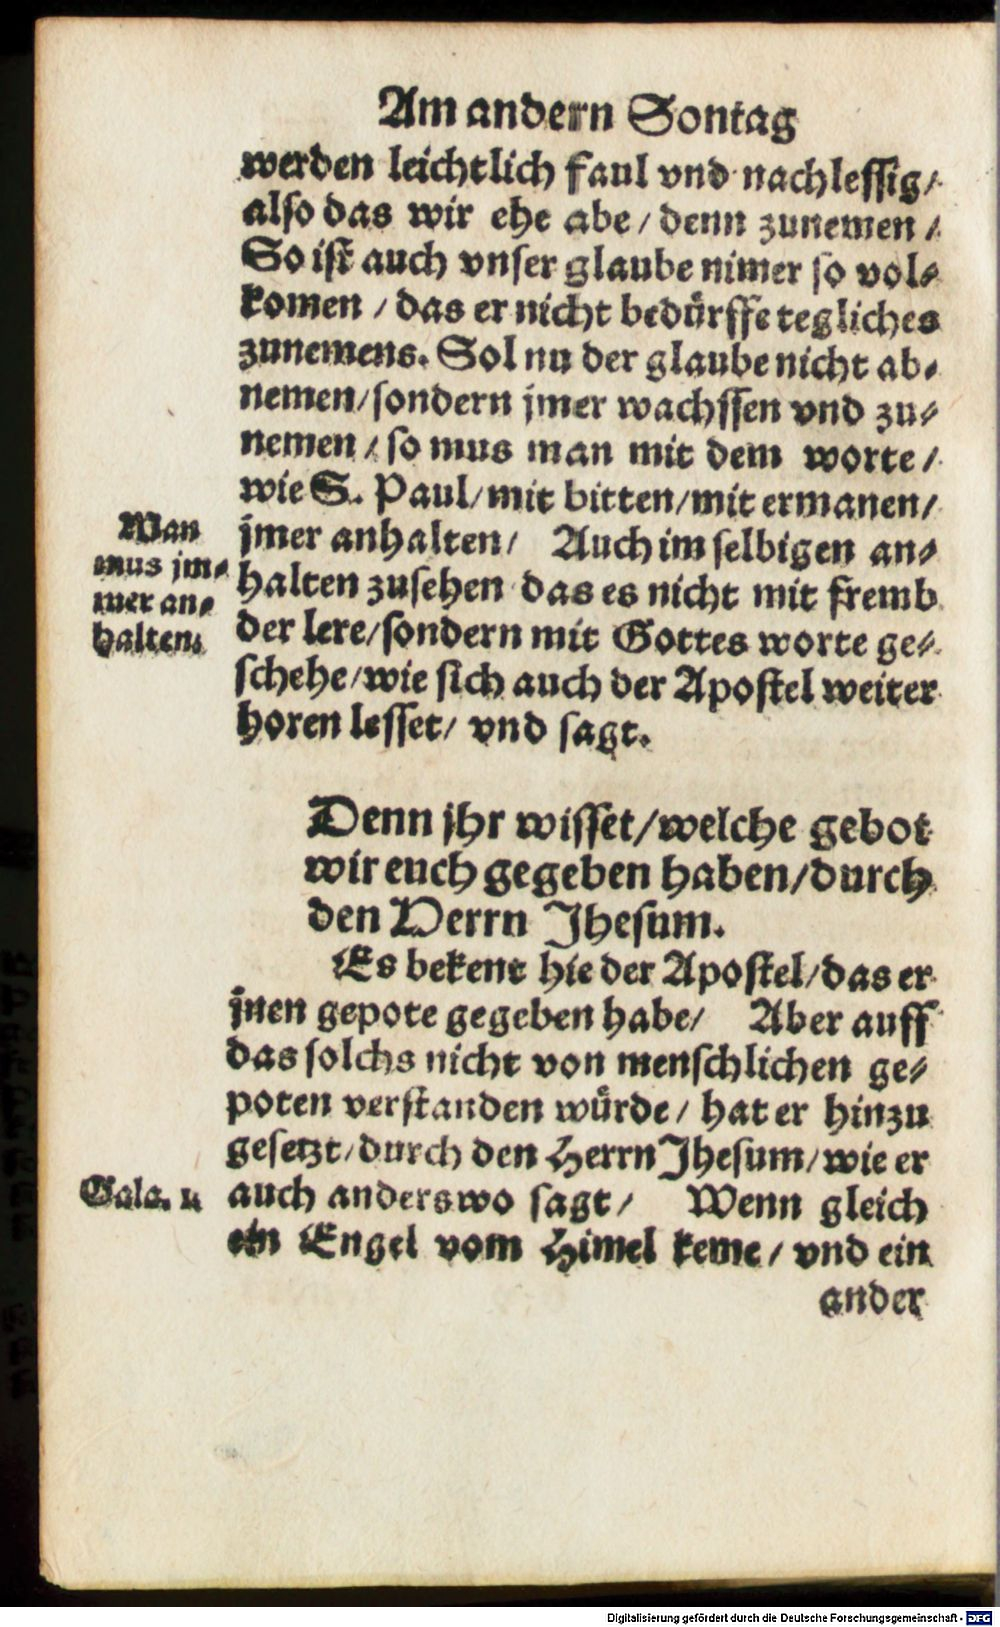 Am andern Sontag
werden leichtlich faul vnd nachlessig/
also das wir ehe abe/ denn zunemen/
So ist auch vnser glaube nimer so vol⸗
komen/ das er nicht bedürffe tegliches
zunemens. Sol nu der glaube nicht ab⸗
nemen/ sondern jmer wachssen vnd zu⸗
nemen/ so mus man mit dem worte/
wie S. Paul/ mit bitten/ mit ermanen/
jmer anhalten/ Auch im selbigen an⸗
halten zusehen das es nicht mit fremb
der lere/ sondern mit Gottes worte ge⸗
schehe/ wie sich auch der Apostel weiter
horen lesset/ vnd sagt.
Man
mus jm⸗
mer an⸗
halten.
Denn jhr wisset/ welche gebot
wir euch gegeben haben/ durch
den Herrn Jhesum.
Es bekent hie der Apostel/ das er
jnen gepote gegeben habe/ Aber auff
das solchs nicht von menschlichen ge⸗
poten verstanden würde/ hat er hinzu
gesetzt/ durch den Herrn Jhesum/ wie er
auch anderswo sagt/ Wenn gleich
ein Engel vom Himel keme/ vnd ein
Gala. 1.
ander
Digitalisierung gefördert durch die Deutsche Forschungsgemeinschaft - DFG